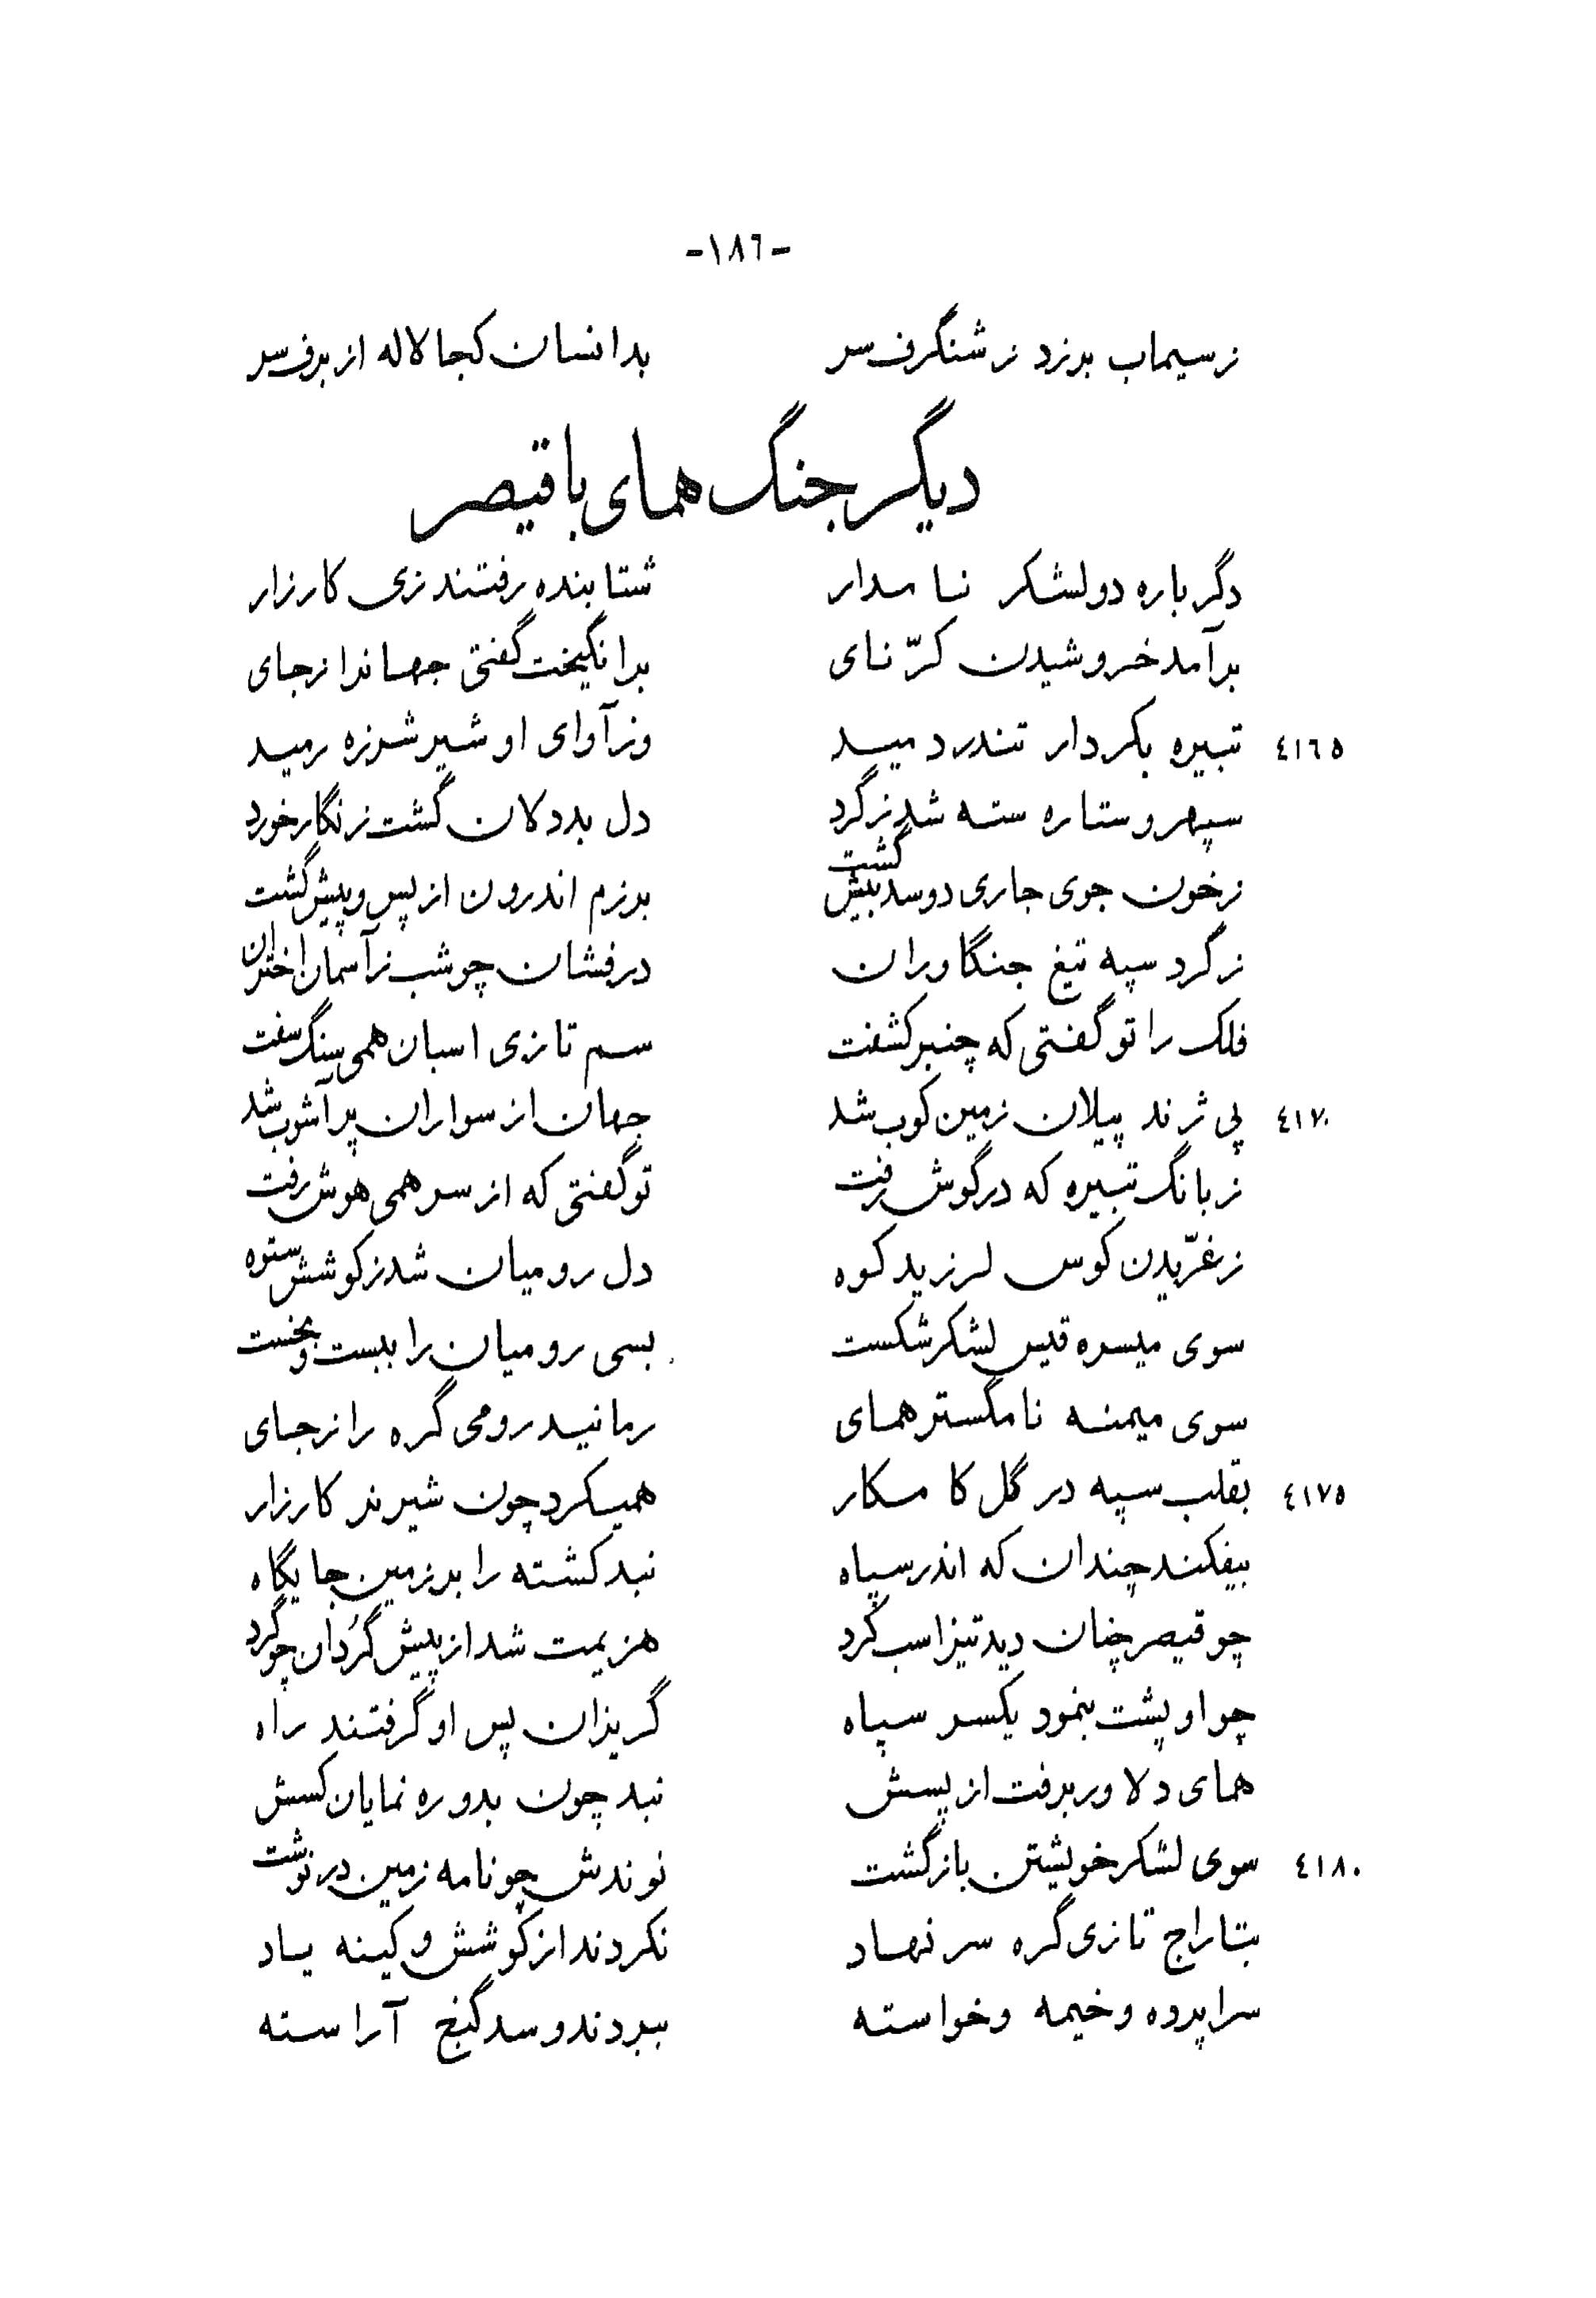 -١٨٦-
ز سیماب بر زد ز شنگرف سر بدانسان کجا لاله از برف سر
دیگر جنگ همای با قیصر
دگر باره دو لشکر نامدار شتابنده رفتند زی کارزار
برآمد خروشیدن کرّنای برانگیخت گفتی جهانرا ز جای
٤١٦٥ تبیره بکردار تندر دمید وز آوای او شیر شرزه رمید
سپهر و ستاره سته شد ز گرد دل بددلان گشت زنگار خورد
ز خون جوی جاری دو سد بیش گشت برزم اندرون از پس و پیش گشت
ز گرد سپه تیغ جنگاوران درفشان چو شب ز آسمان اختران
فلک را تو گفتی که چنبر کشفت سم تازی اسبان همی سنگ سفت
٤١٧٠ پی ژنده پیلان زمین کوب شد جهان از سواران پر آشوب شد
ز بانگ تبیره که در گوش رفت تو گفتی که از سر همی هوش رفت
ز غرّیدن کوس لرزید کوه دل رومیان شد ز کوشش ستوه
سوی میسره قیس لشکر شکست بسی رومیان را ببست و بخست
سوی میمنه نامگستر همای رمانید رومی گره را ز جای
٤١٧٥ بقلب سپه در گل کامکار همیکرد چون شیر نر کارزار
بیفکند چندان که اندر سپاه نبد کشته را بر زمین جایگاه
چو قیصر چنان دید تیز اسب کرد هزیمت شد از پیش گُردان چو گرد
چو او پشت بنمود یکسر سپاه گریزان پس او گرفتند راه
همای دلاور برفت از پسش نبد چون بدو ره نمایان کسش
٤١٨٠ سوی لشکر خویشتن بازگشت نوندش چو نامه زمین در نوشت
بتاراج تازی گره سر نهاد نکردند از کوشش و کینه یاد
سراپرده و خیمه و خواسته ببردند و سد گنج آراسته